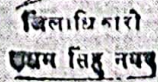 जिलाधिकारी
ऊधम सिंह नगर